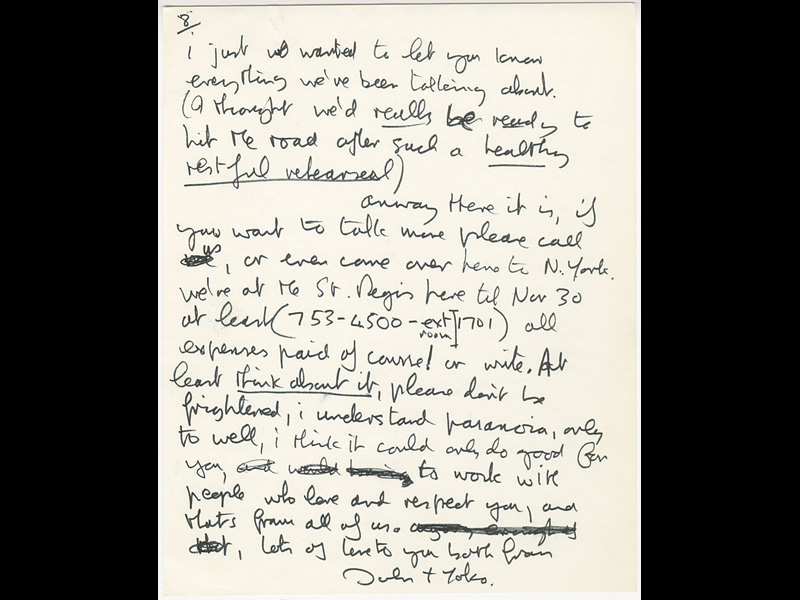 8/
i just wanted to let you know
everything we've been talking about.
(I thought we'd really be ready to
hit the road after such a healthy
restful rehearsal)
anway Here it is, if
you want to talk more please call
us, or even come over here to N. York.
we're at the St. Regis here til Nov 30
at least (753-4500 - ext 1701) all
room
expenses paid of course! or write. At
least think about it, please don't be
frightened, i understand paranoia, only
to well, i think it could only do good for
you, to work with
people who love and respect you, and
that's from all of us.
, lots of love to you both from
John + Yoko.